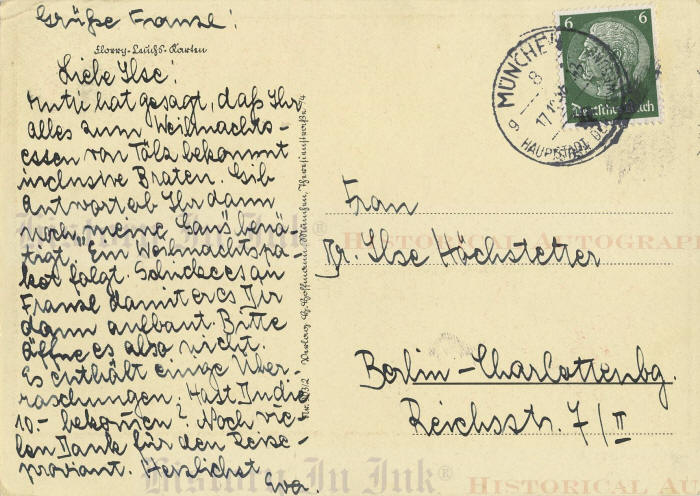 Grüße Franze!
Florry-Leuchs-Karten
Liebe Ilse!
Mutti hat gesagt, daß Ihr
alles zum Weihnachts-
essen von Tölz bekommt
inclusive Braten. Gib
Antwort ob Ihr dann
noch "meine Gans" benö-
tigt. Ein Weihnachtspa-
ket folgt. Schicke es an
Franzl damit er es Dir
dann aufbaut. Bitte
öffne es also nicht.
Es enthält einige Über-
raschungen. Hast Du die
10.- bekommen? Noch vie-
len Dank für den Reise-
proviant. Herzlichst
Eva.
Verlag H. Hoffmann, München, Theresienstraße 74
6 6
Deutsches Reich
MÜNCHEN
HAUPTSTADT DER
Frau
Dr. Ilse Höchstetter
Berlin-Charlottenbg.
Reichsstr. 7/II
History In Ink®
HISTORICAL AUTOGRAP
History In Ink®
HISTORICAL AU